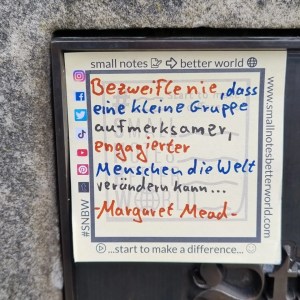 small notes better world
Bezweifle nie, dass
eine kleine Gruppe
aufmerksamer,
engagierter
Menschen die Welt
verändern kann...
-Margaret Mead-
...start to make a difference...
#SNBW
www.smallnotesbetterworld.com